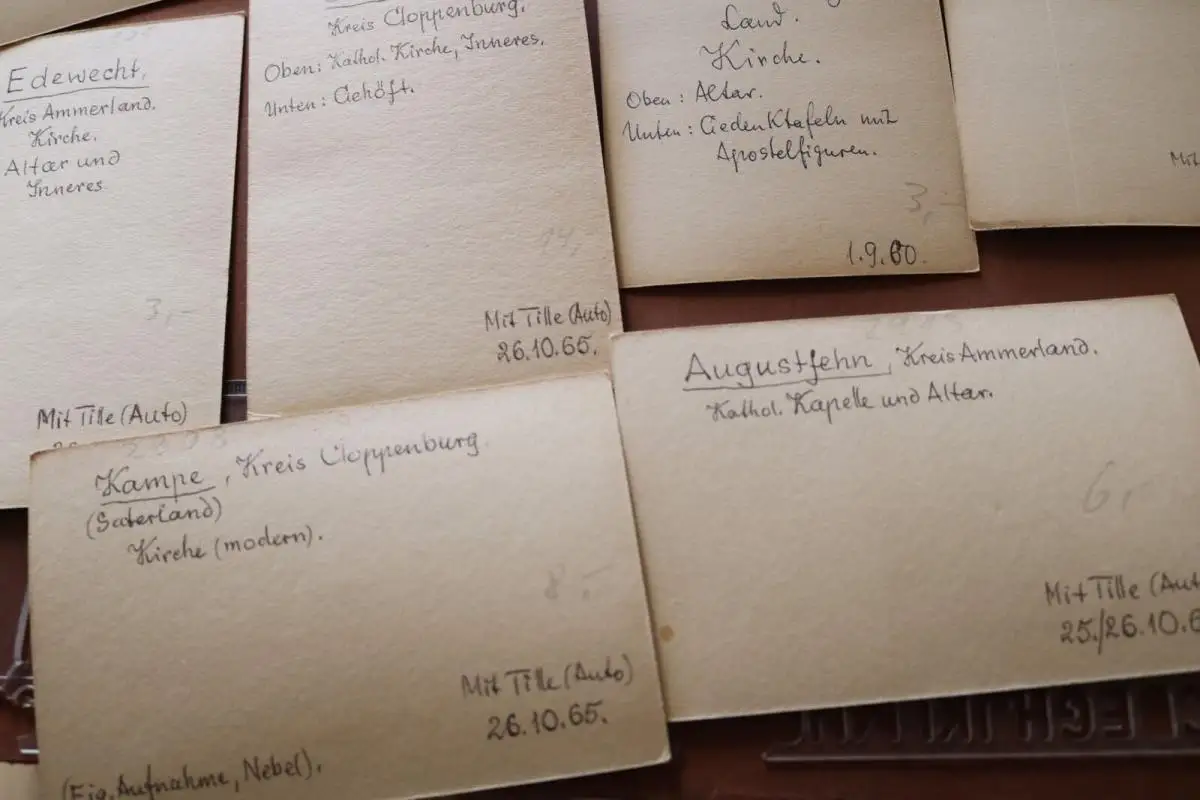 Edewecht,
Kreis Ammerland.
Kirche.
Altar und
Inneres
3,-
Mit Tille (Auto)
Kreis Cloppenburg.
Oben: Kathol. Kirche, Inneres.
Unten: Gehöft.
14,
Mit Tille (Auto)
26.10.65.
Land.
Kirche.
Oben: Altar.
Unten: Gedenktafeln mit
Apostelfiguren.
3,-
1.9.60.
Mit
Kampe, Kreis Cloppenburg
(Saterland)
Kirche (modern).
8,-
Mit Tille (Auto)
26.10.65.
(Eig. Aufnahme, Nebel).
Augustfehn, Kreis Ammerland.
Kathol. Kapelle und Altar.
6,-
Mit Tille (Aut
25./26.10.6